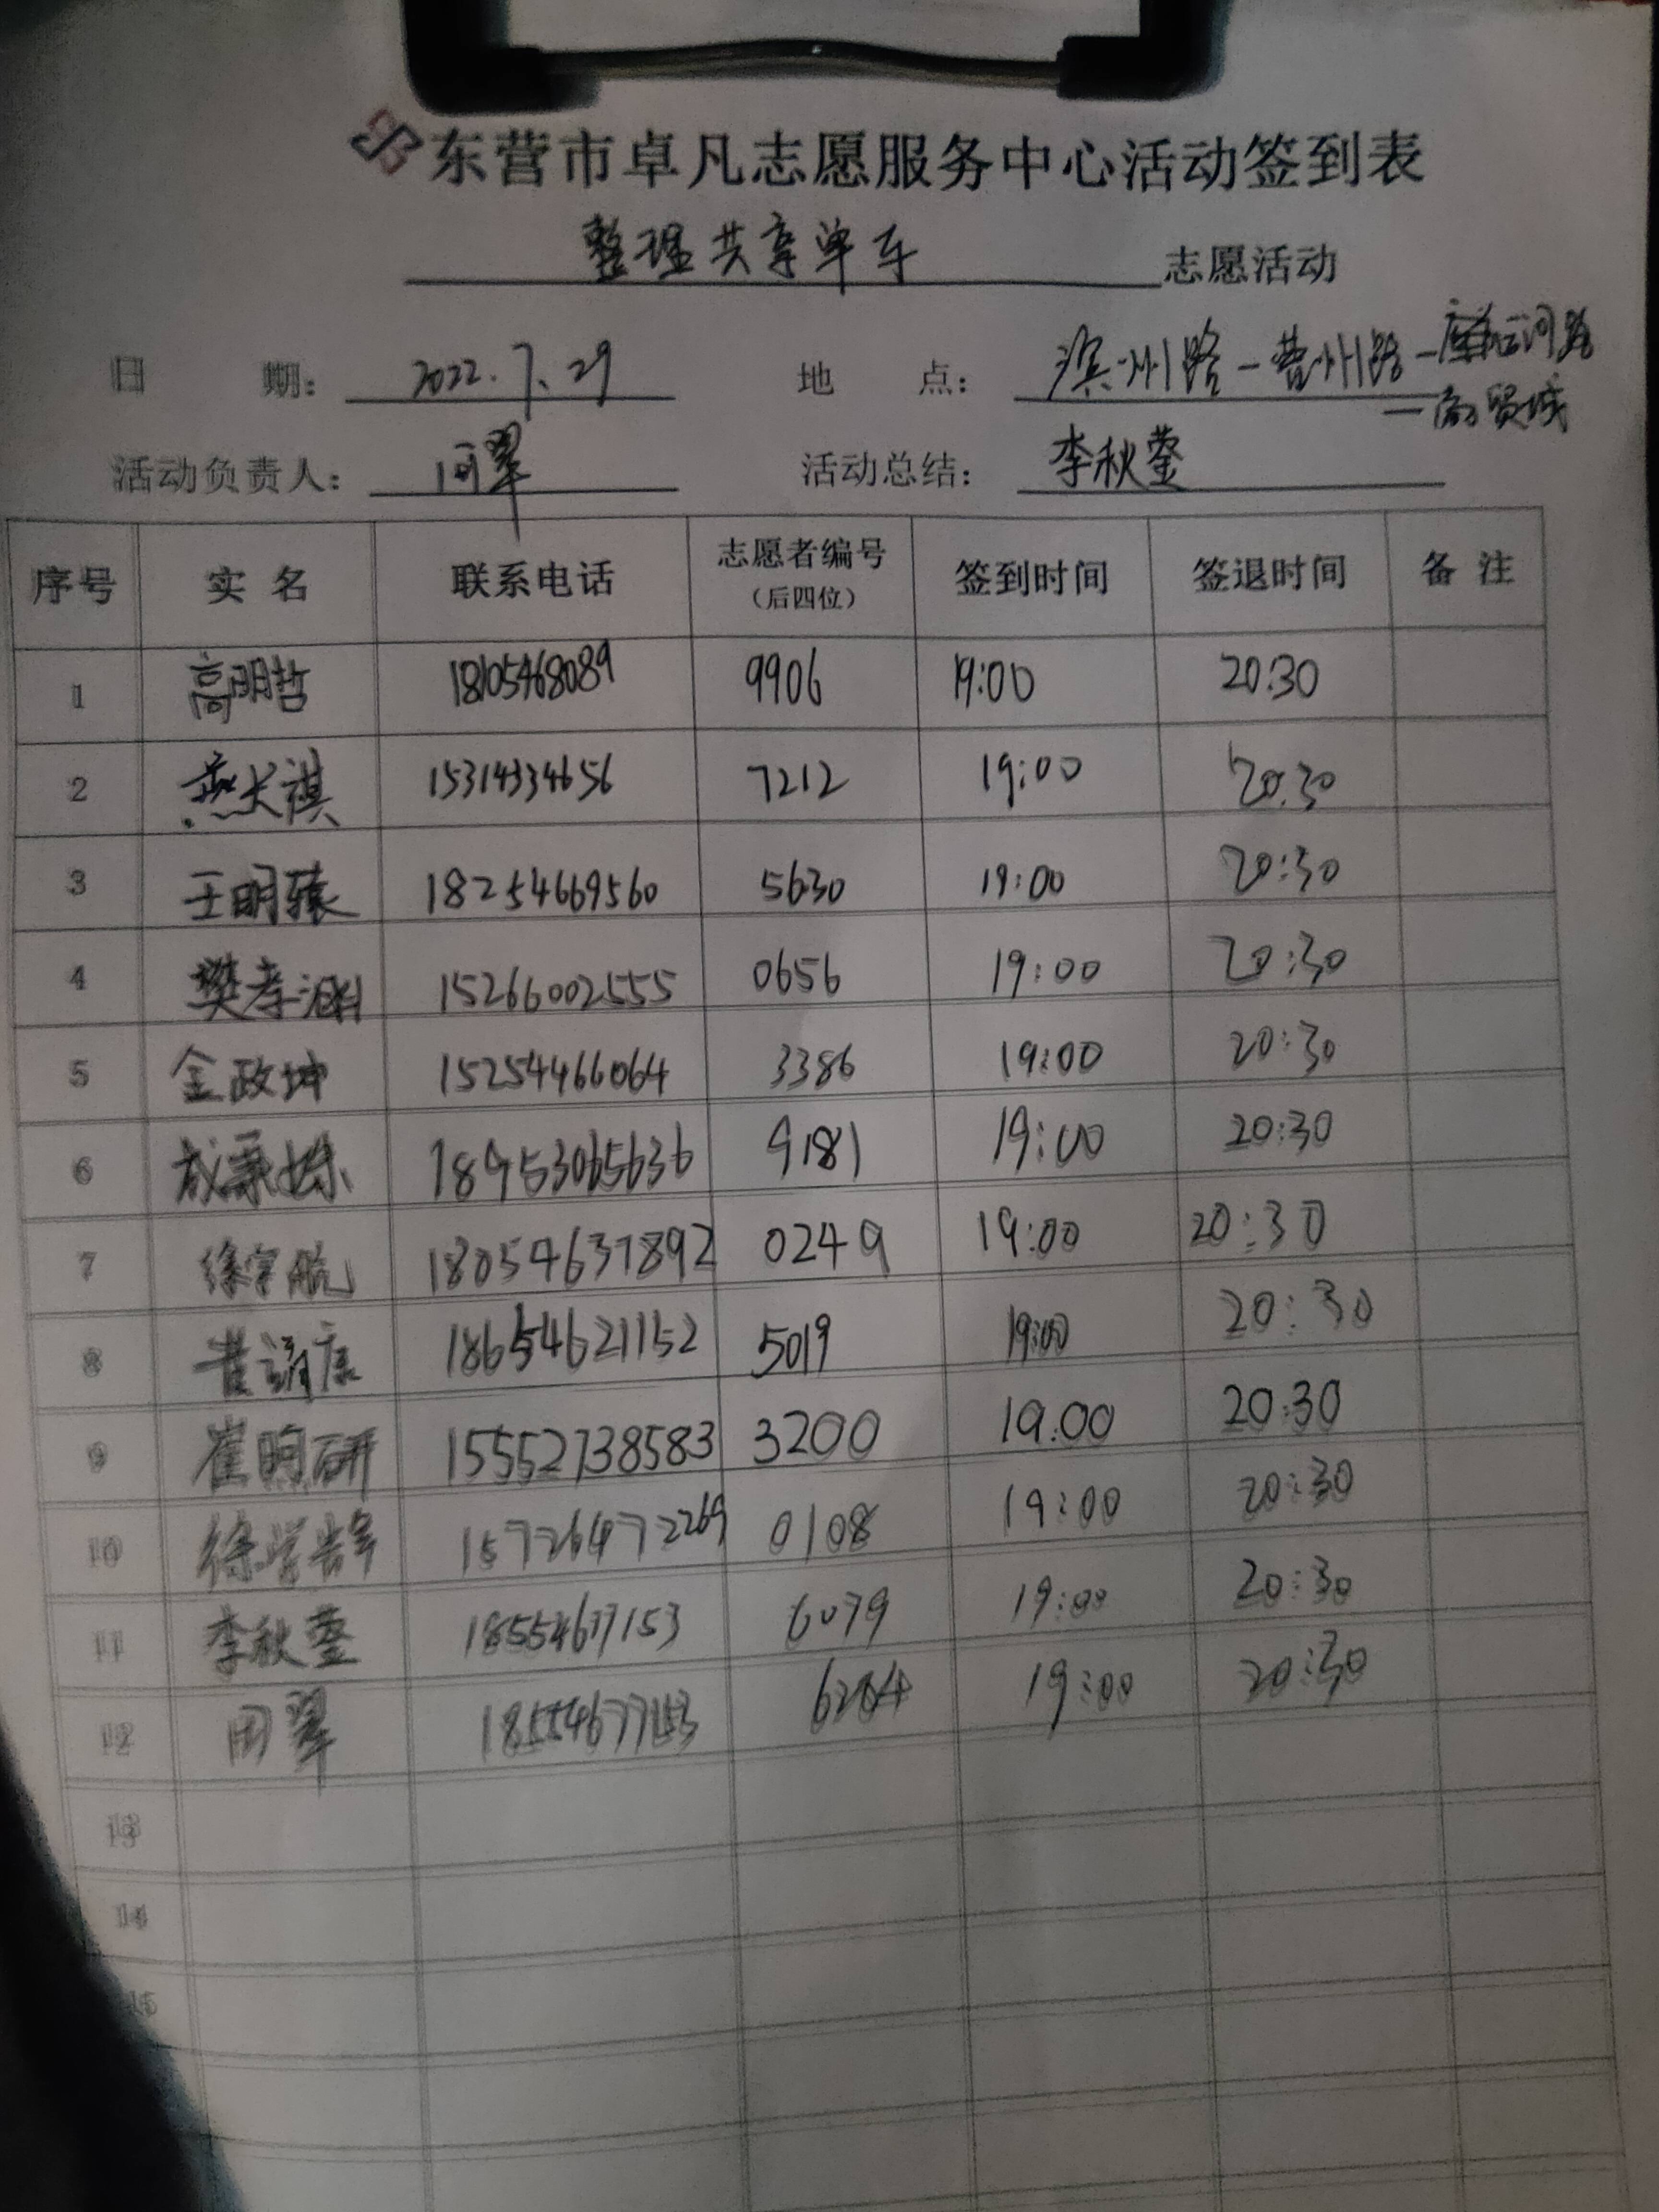 东营市卓凡志愿服务中心活动签到表
整理共享单车 志愿活动
日 期： 2022.7.29 地 点： 滨州路-曹州路- 运河路
-商贸城
活动负责人： 翠 活动总结： 李秋蓥
序号 实 名 联系电话 志愿者编号（后四位） 签到时间 签退时间 备 注
1 高明哲 18105468089 9906 19:00 20:30
2 燕天祺 15314334656 7212 19:00 20:30
3 王明骧 18254669560 5630 19:00 20:30
4 樊孝 15266002555 0656 19:00 20:30
5 金政坤 15254466064 3386 19:00 20:30
6 成秉姝 18953065636 9181 19:00 20:30
7 徐宇航 18054637892 0249 19:00 20:30
8 康 18654621152 5019 19:00 20:30
9 崔昫研 15552738583 3200 19.00 20:30
10 徐 15726472269 0108 19:00 20:30
11 李秋蓥 18554677153 6079 19:00 20:30
12 田翠 18554677153 6264 19:00 20:30
13
14
15